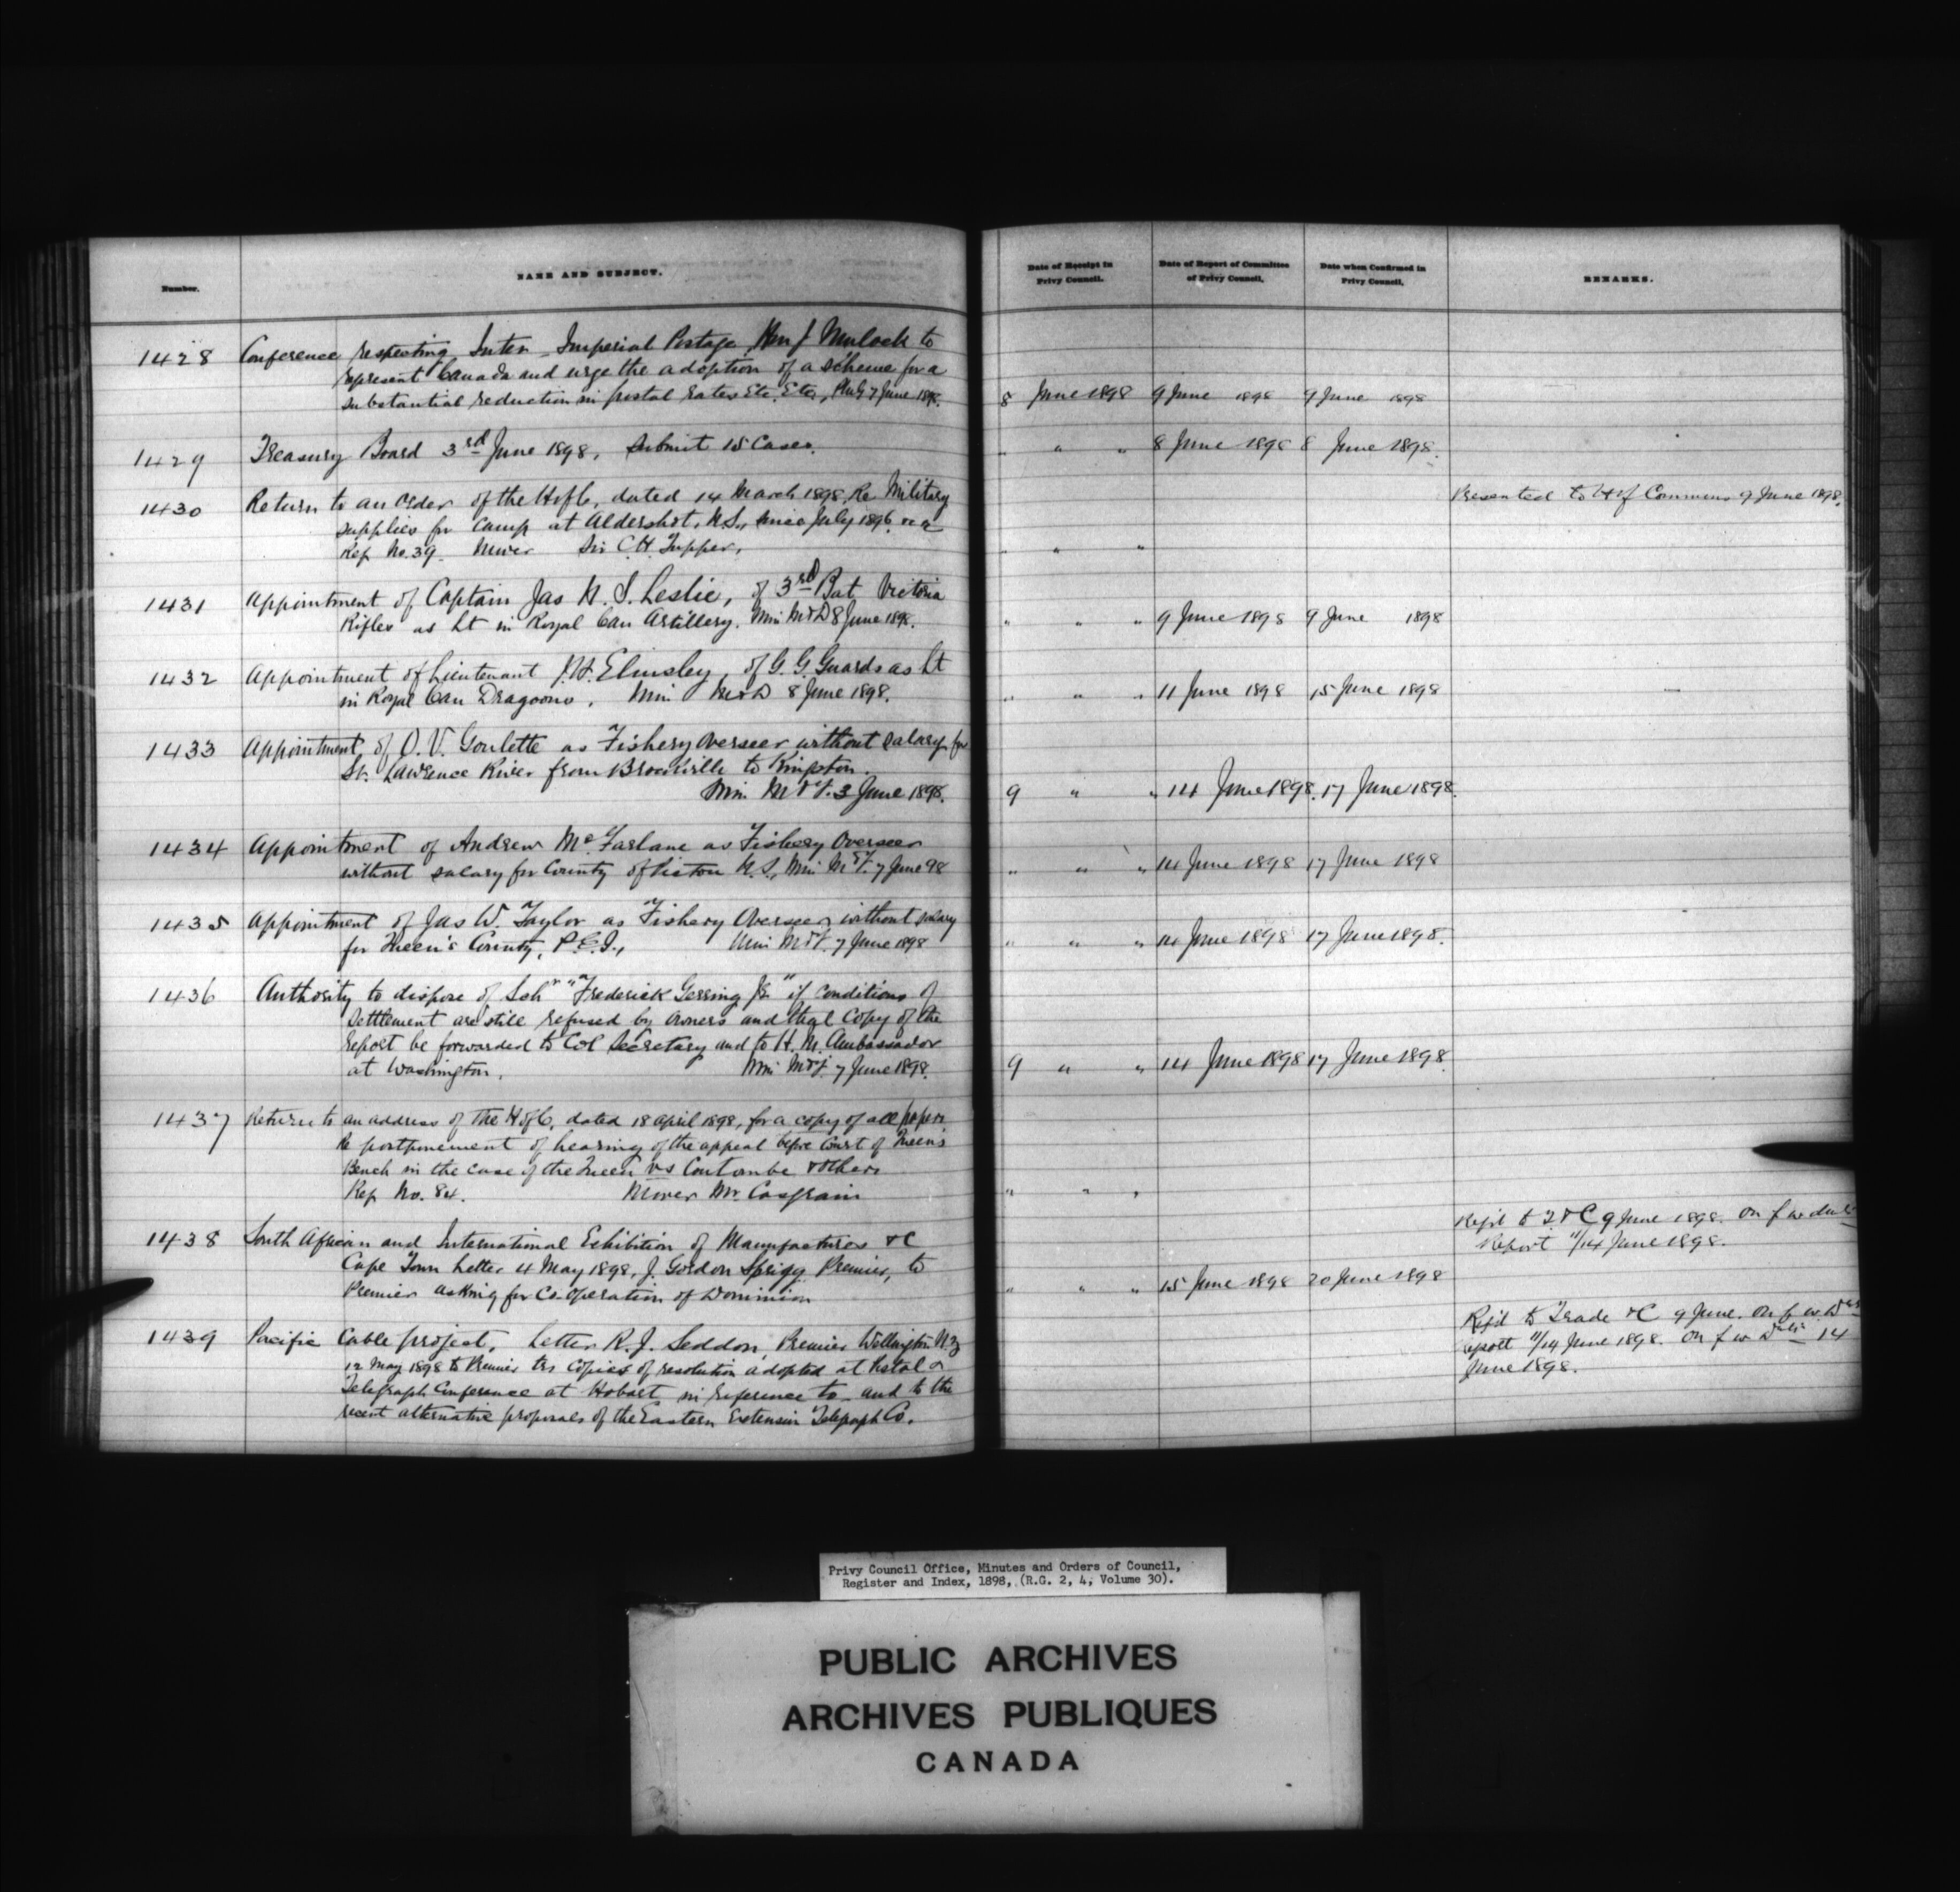 Number.
NAME AND SUBJECT.
Date of Receipt in
Privy Council.
Date of Report of Committee
of Privy Council.
Date when Confirmed in
Privy Council.
REMARKS.
1428 Conference respecting Inter-Imperial Postage, Mulock to
represent Canada and urge the adoption of a scheme for a
substantial reduction in postal rates Etc. Etc., 7 June 1898.
8 June 1898 9 June 1898 9 June 1898
1429 Treasury Board 3rd June 1898, submit 15 Cases.
" " " 8 June 1898 8 June 1898.
1430 Return to an Order of the H of C, dated 14 March 1898, Re Military
supplies for Camp at Aldershot, N.S., since July 1896
Ref No. 39. Mover Sir C.H. Tupper.
" " "
Presented to H of Commons 9 June 1898.
1431 Appointment of Captain Jas N. S. Leslie, of 3rd Bat Victoria
Rifles as Lt in Royal Can Artillery. Min M&D 8 June 1898.
" " " 9 June 1898 9 June 1898
1432 Appointment of Lieutenant J.H. Elmsley, of G. G. Guards as Lt
in Royal Can Dragoons, Min M&D 8 June 1898.
" " " 11 June 1898 15 June 1898
1433 Appointment of O. V. Goulette as Fishery Overseer without salary for
St. Lawrence River from Brockville to Kingston.
Min. M&F. 3 June 1898.
9 " " 14 June 1898. 17 June 1898.
1434 Appointment of Andrew McFarlane as Fishery Overseer
without salary for County of Pictou N.S., Min M&F. 7 June 98
" " " 14 June 1898 17 June 1898
1435 Appointment of Jas W. Taylor as Fishery Overseer without salary
for Queen's County, P.E.I., Min M&F. 7 June 1898
" " " 14 June 1898 17 June 1898.
1436 Authority to dispose of Schr "Frederick Gerring Jr." if conditions of
Settlement are still refused by owners and that Copy of the
report be forwarded to Col Secretary and to H. M. Ambassador
at Washington. Min M&F 7 June 1898.
9 " " 14 June 1898 17 June 1898.
1437 Return to an address of the H of C, dated 18 April 1898, for a copy of all papers
Re postponement of hearing of the appeal before Court of Queen's
Bench in the case of the Queen vs Coutombe & others
Ref No. 84. Mover Mr. Casgrain
" " "
1438 South African and International Exhibition of Manufactures &C
Cape Town Letter 4 May 1898, J. Gordon Sprigg Premier, to
Premier asking for Co-operation of Dominion
" " " 15 June 1898 20 June 1898
Ref'd to T. & C 9 June 1898. On f w
Report 11/14 June 1898.
1439 Pacific Cable project, Letter R. J. Seddon, Premier Wellington N.Z
12 May 1898 to Premier trs Copies of resolution adopted at Postal &
Telegraph Conference at Hobart in reference to and to the
recent alternative proposals of the Eastern Extension Telegraph Co.
Ref'd to Trade & C 9 June. On f w
report 11/14 June 1898. On f w 14
June 1898.
Privy Council Office, Minutes and Orders of Council,
Register and Index, 1898, (R.G. 2, 4, Volume 30).
PUBLIC ARCHIVES
ARCHIVES PUBLIQUES
CANADA